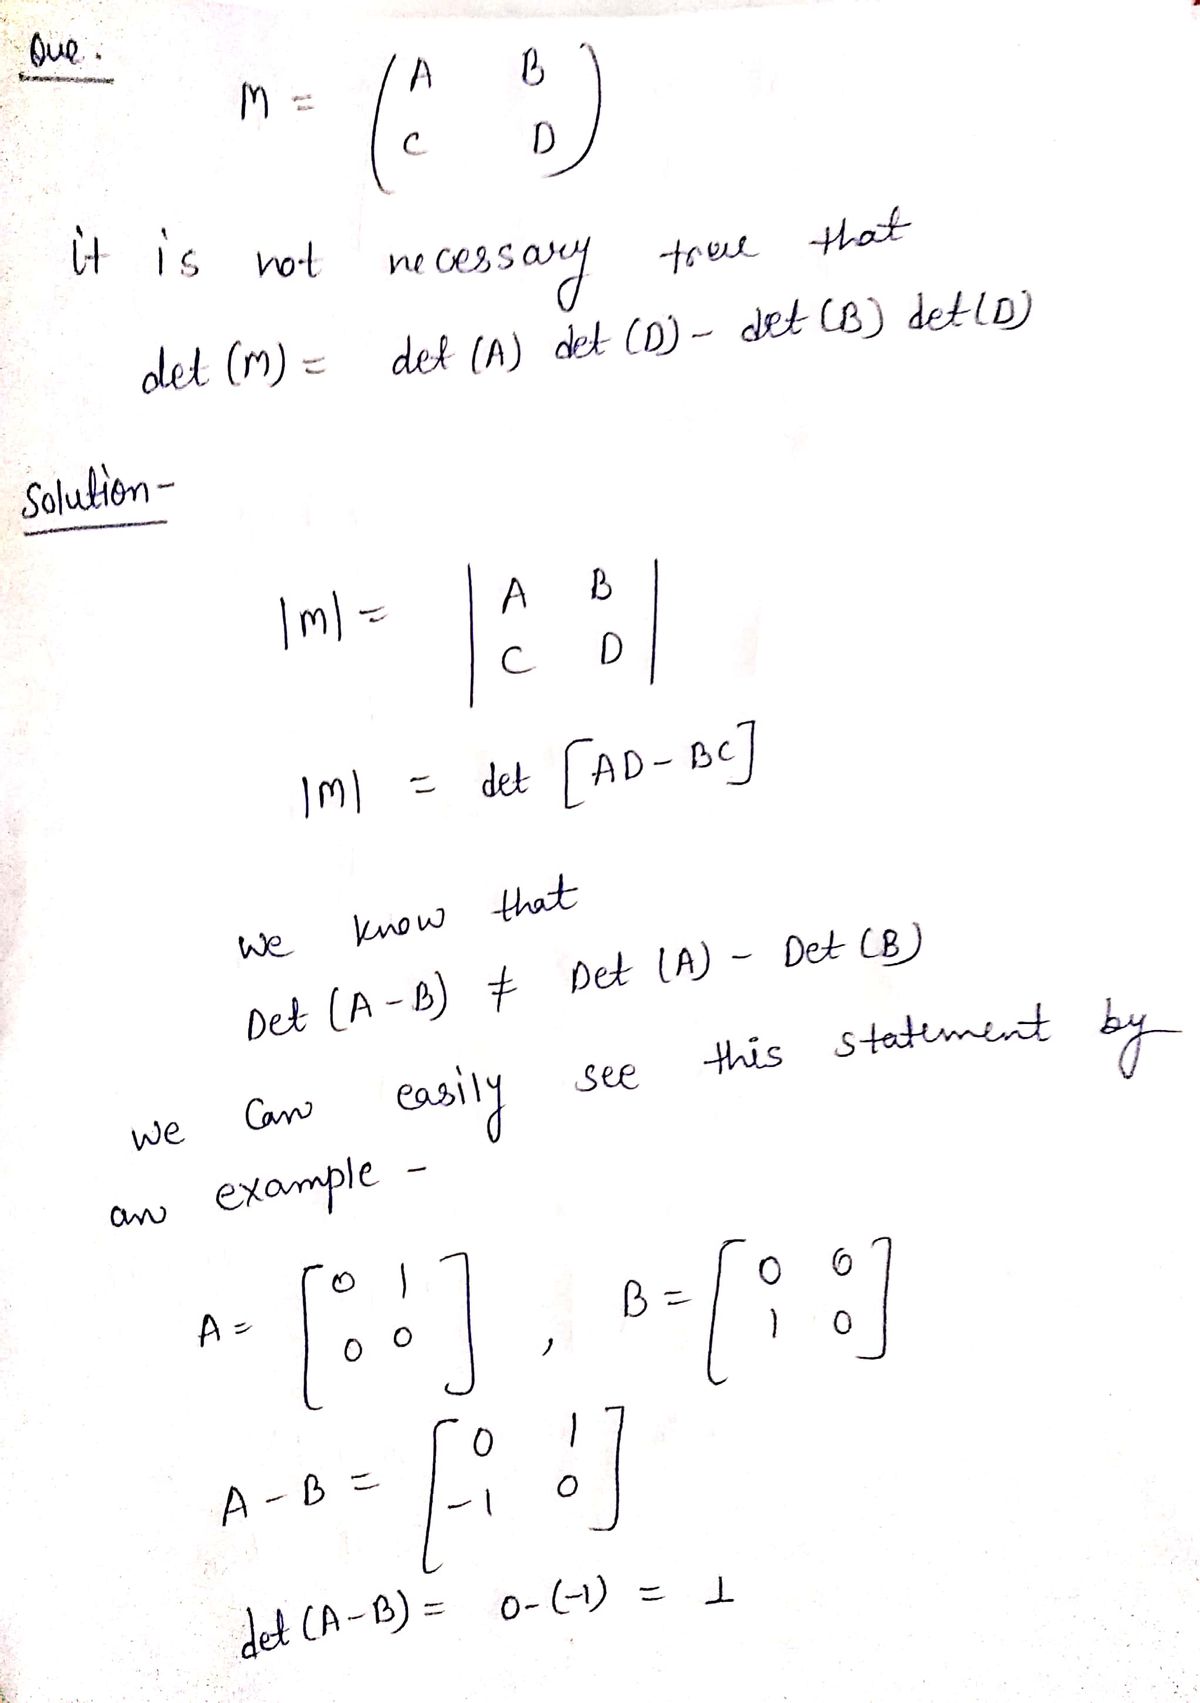 Que.
M = ( A B
C D )
it is not necessary true that
det (M) = det (A) det (D) - det (B) det (D)
Solution -
|M| = | A B
C D |
|M| = det [AD - BC]
we know that
Det (A - B) ≠ Det (A) - Det (B)
we can easily see this statement by
an example -
A = [ 0 1
0 0 ] , B = [ 0 0
1 0 ]
A - B = [ 0 1
-1 0 ]
det (A - B) = 0 - (-1) = 1